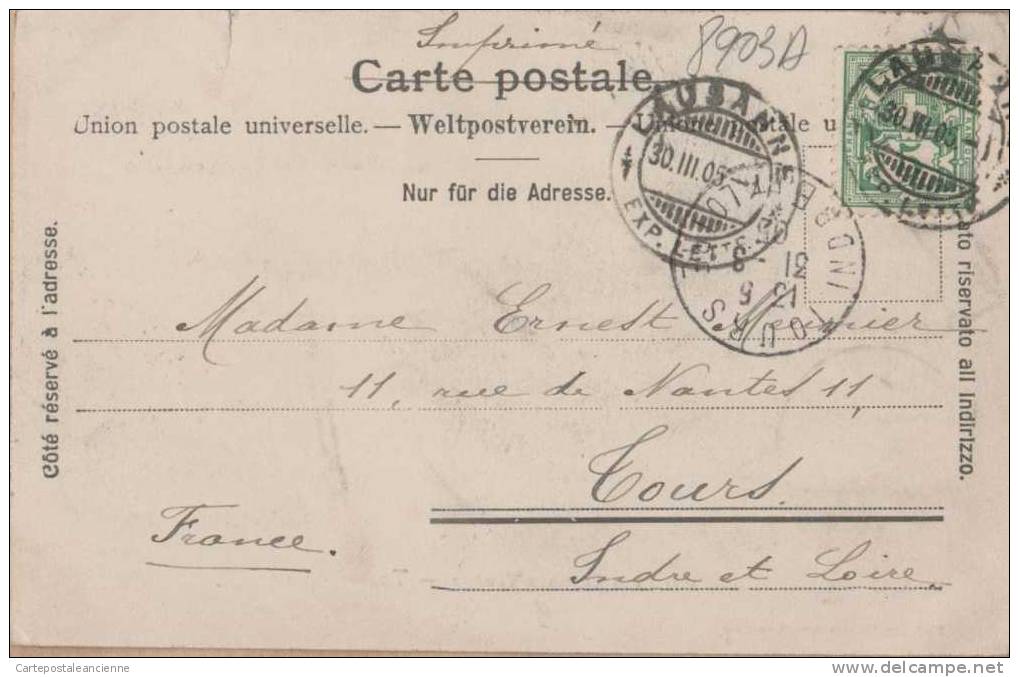 Imprimé
8903A
Carte postale.
Union postale universelle. — Weltpostverein. — Unione postale u
Nur für die Adresse.
Côté réservé à l'adresse.
ato riservato all indirizzo.
LAUSANNE
30.III.05
EXP. LETTR.
LAUSA
30.III.05
TOURS
INDRE
31
12 5
Madame Ernest Meunier
11, rue de Nantes 11,
Tours.
France.
Indre et Loire.
Cartepostaleancienne
delcampe.net